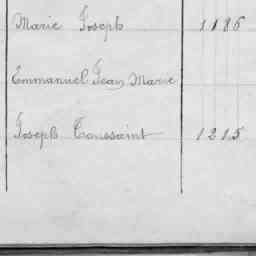 Marie Joseph 1186
Emmanuel Jean Marie
Joseph Toussaint 1215